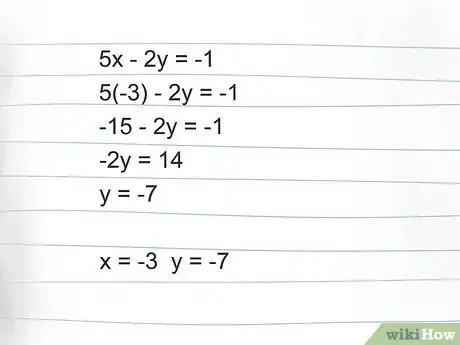 5x - 2y = -1
5(-3) - 2y = -1
-15 - 2y = -1
-2y = 14
y = -7
x = -3 y = -7
wikiHow